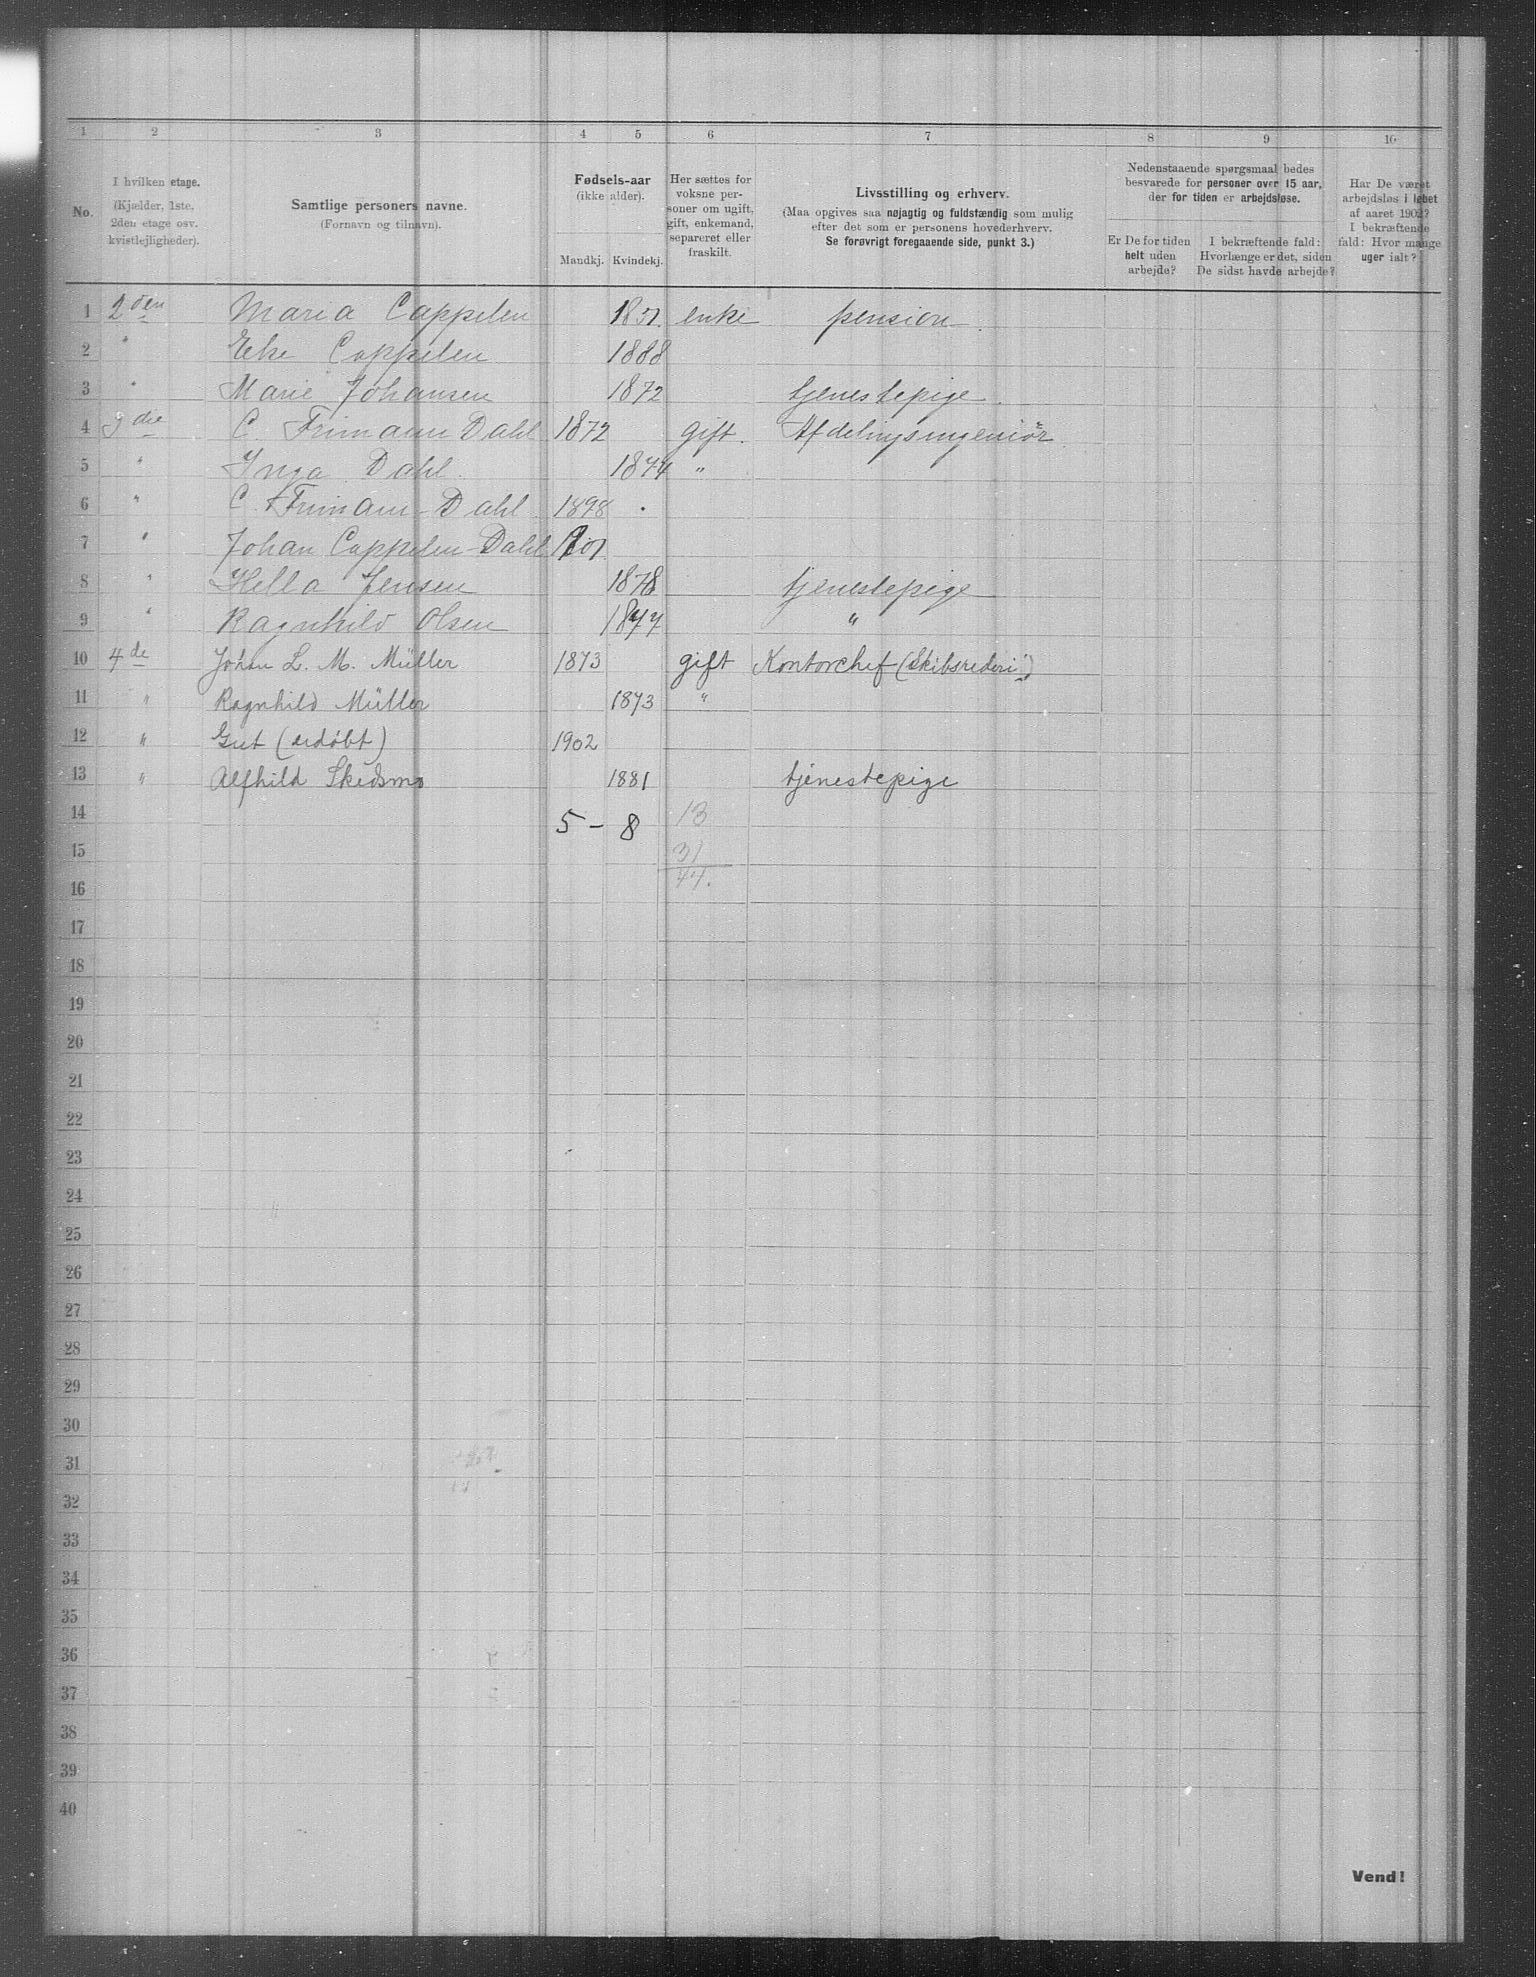 1 2 3 4 5 6 7 8 9 10
No.
I hvilken etage.
(Kjælder, 1ste.
2den etage osv.
kvistlejligheder).
Samtlige personers navne.
(Fornavn og tilnavn).
Fødsels-aar
(ikke alder).
Mandkj. Kvindekj.
Her sættes for
voksne per-
soner om ugift,
gift, enkemand,
separeret eller
fraskilt.
Livsstilling og erhverv.
(Maa opgives saa nøjagtig og fuldstændig som mulig
efter det som er personens hovederhverv.
Se forøvrigt foregaaende side, punkt 3.)
Nedenstaaende spørgsmaal bedes
besvarede for personer over 15 aar,
der for tiden er arbejdsløse.
Er De for tiden
helt uden
arbejde?
I bekræftende fald:
Hvorlænge er det, siden
De sidst havde arbejde?
Har De været
arbejdsløs i løbet
af aaret 1902?
I bekræftende
fald: Hvor mange
uger ialt?
1 2den Maria Cappelen 1851. enke pension.
2 " Else Cappelen 1888
3 " Marie Johansen 1872 tjenestepige.
4 3die C. Frimann Dahl 1872 gift. Afdelingsingeniør
5 " Inga Dahl 1874 "
6 " C. Frimann-Dahl 1898
7 " Johan Cappelen-Dahl
8 " Hella Jensen 1878 tjenestepige
9 " Ragnhild Olsen 1877 "
10 4de Johan L. M. Müller 1873 gift Kontorchef (Skibsrederi)
11 " Ragnhild Müller 1873 "
12 " Gut (udøbt) 1902
13 " Alfhild Skedsmo 1881 tjenestepige
14 5 - 8 13
15 31
16 44.
17
18
19
20
21
22
23
24
25
26
27
28
29
30
31
32
33
34
35
36
37
38
39
40
Vend!